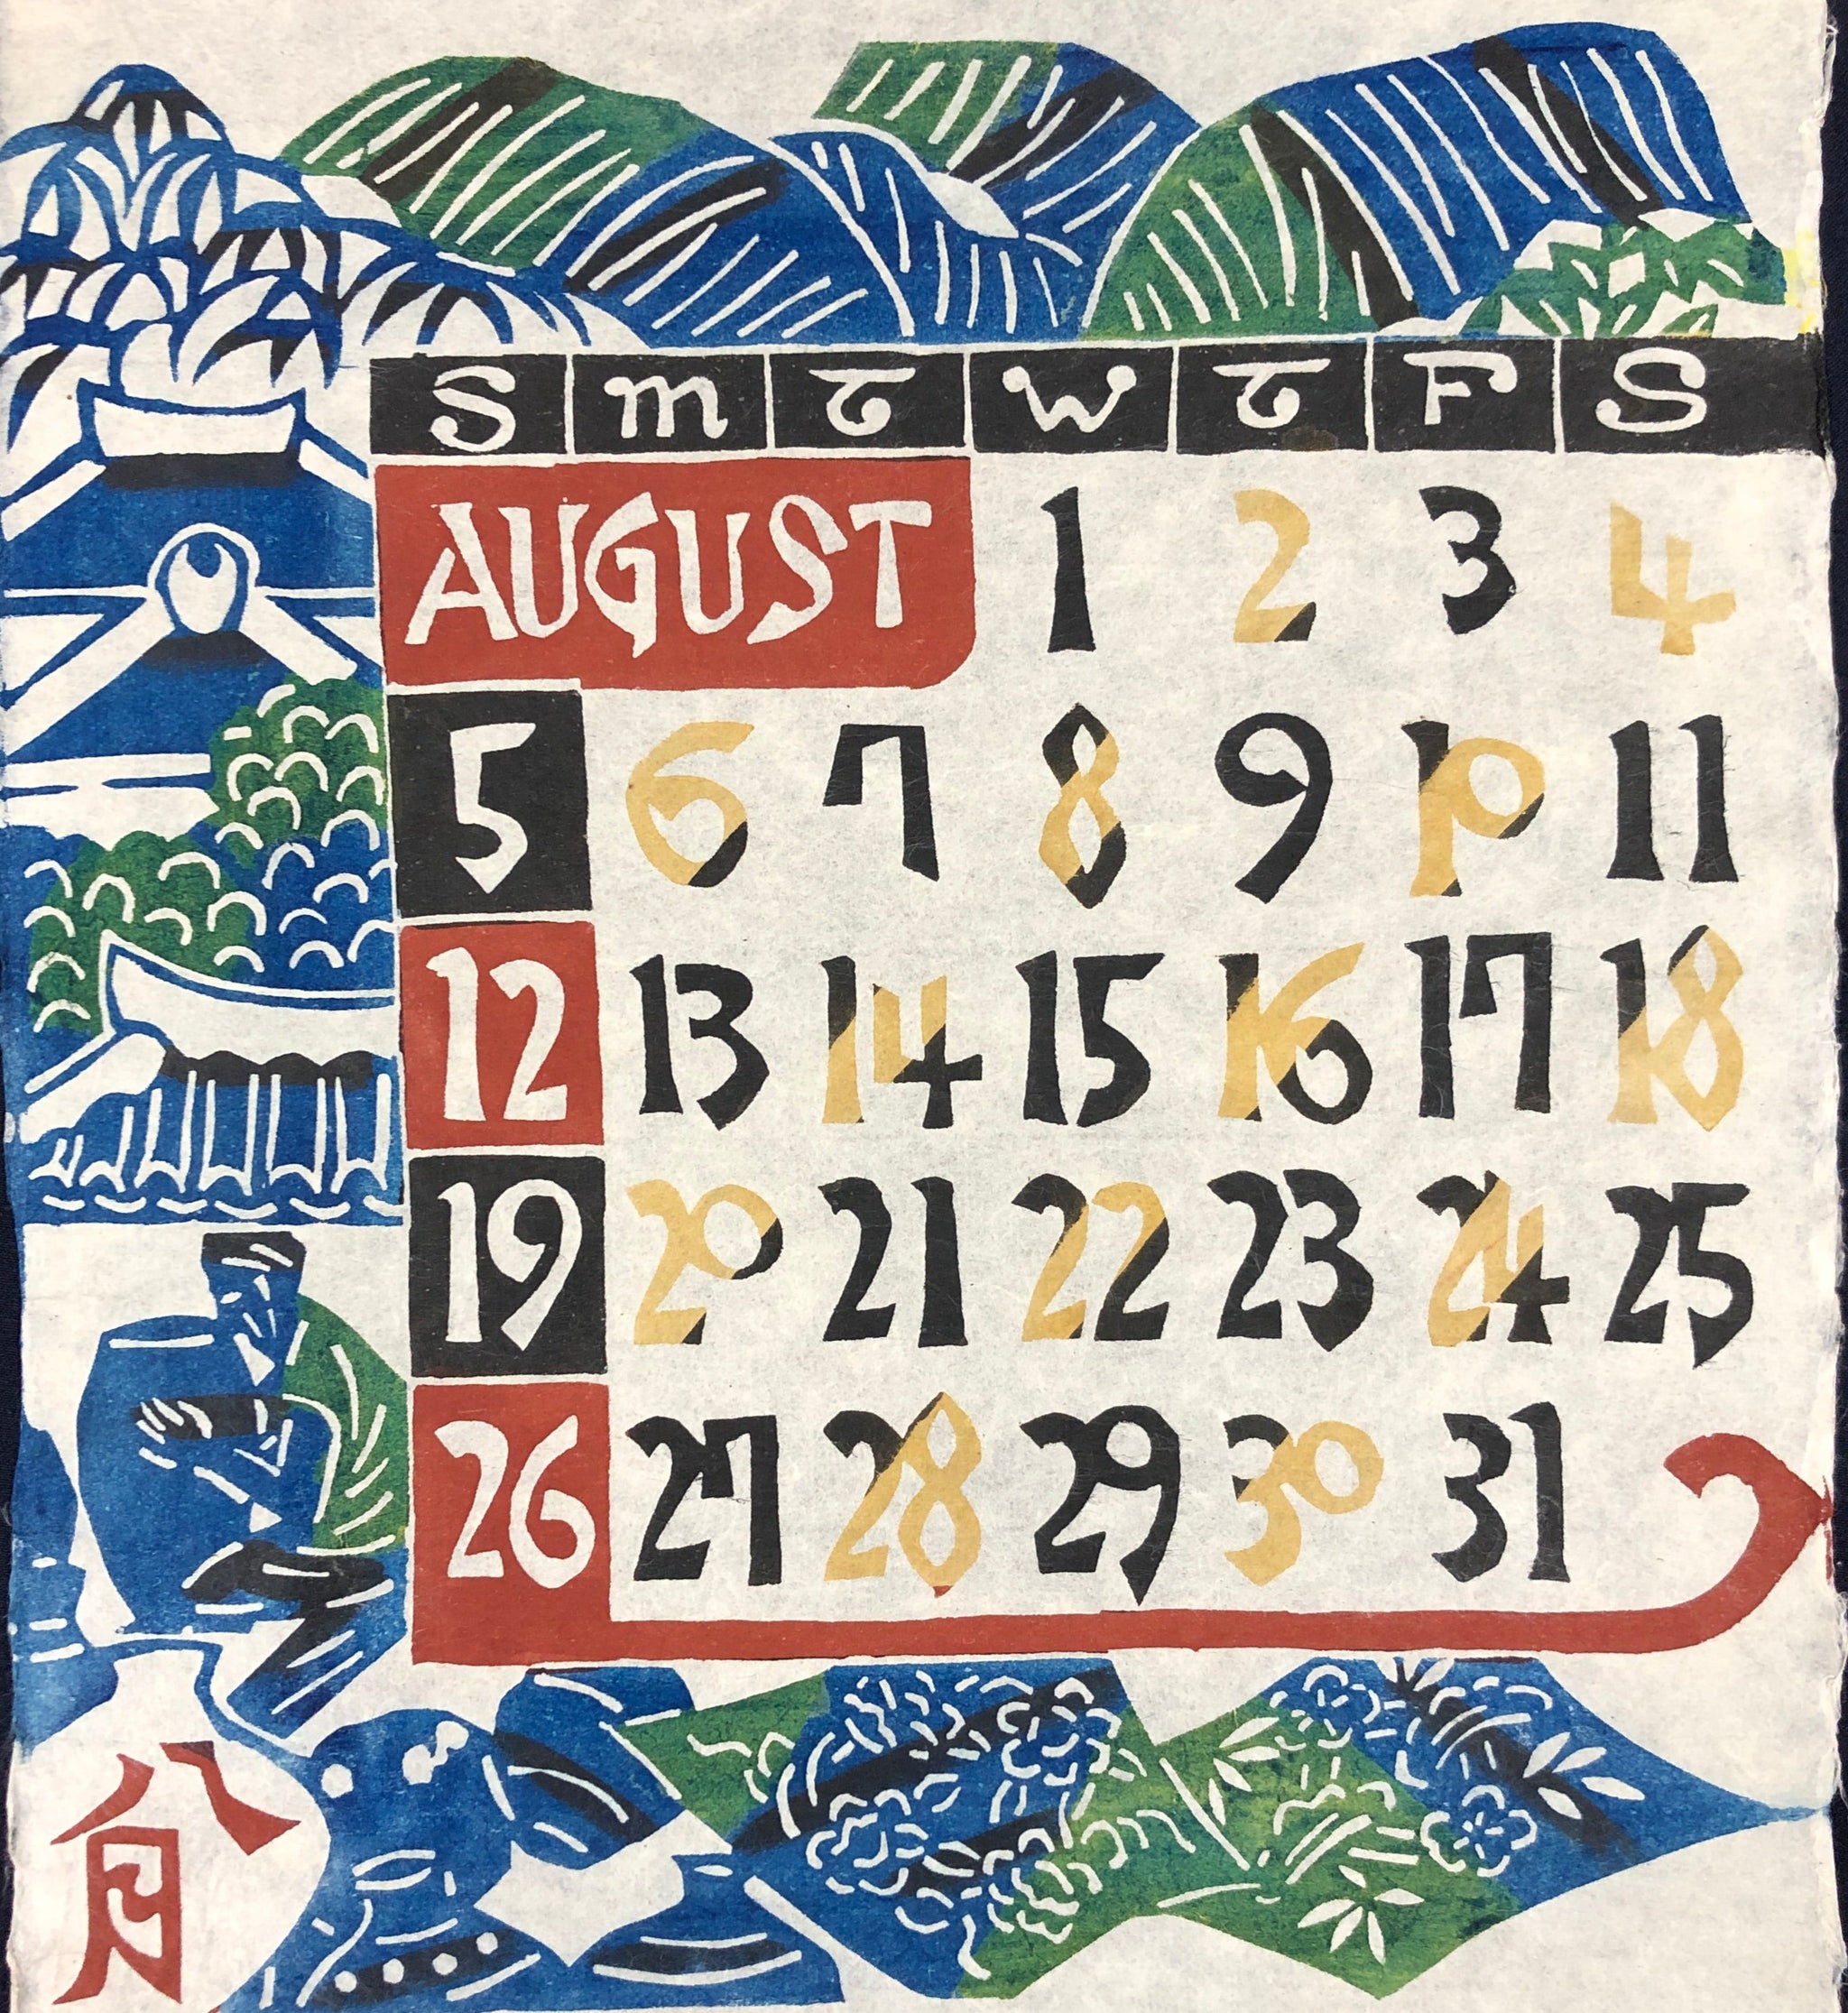 S m T W T F S
AUGUST 1 2 3 4
5 6 7 8 9 10 11
12 13 14 15 16 17 18
19 20 21 22 23 24 25
26 27 28 29 30 31
八月